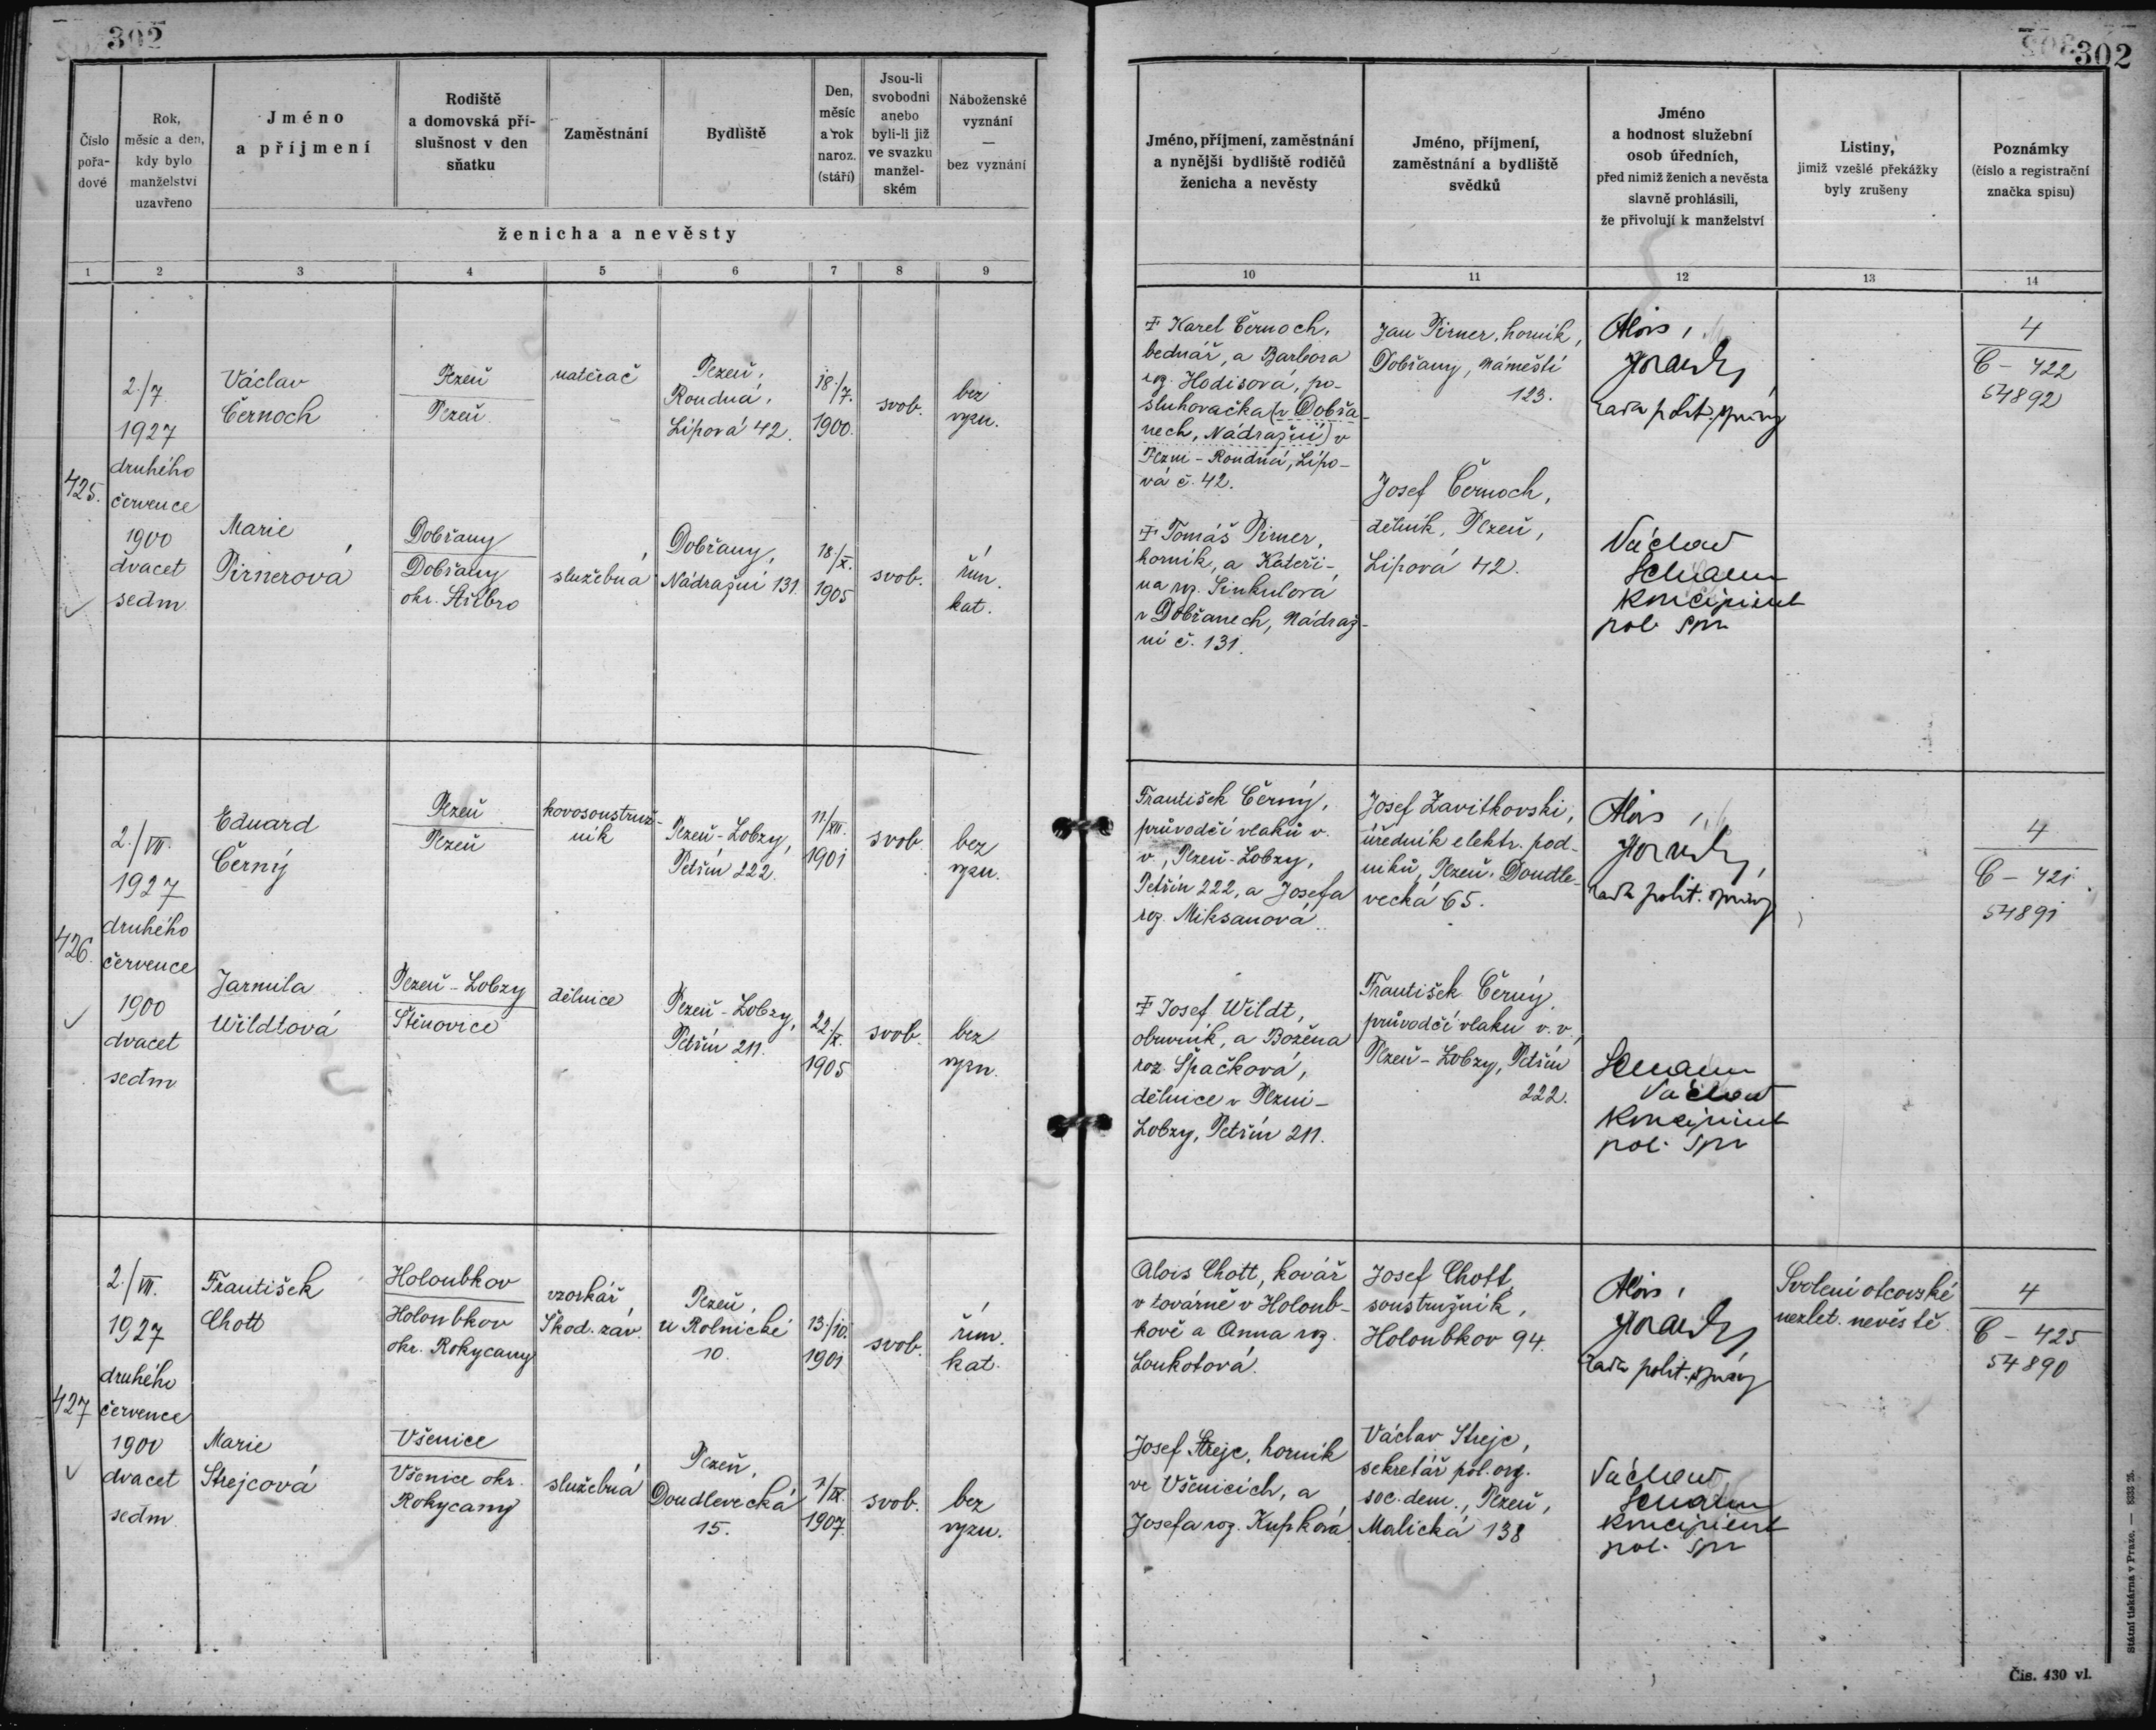 302
302
Číslo
pořa-
dové
Rok,
měsíc a den,
kdy bylo
manželství
uzavřeno
Jméno
a příjmení
Rodiště
a domovská pří-
slušnost v den
sňatku
Zaměstnání
Bydliště
Den,
měsíc
a rok
naroz.
(stáří)
Jsou-li
svobodni
anebo
byli-li již
ve svazku
manžel-
ském
Náboženské
vyznání
—
bez vyznání
ženicha a nevěsty
Jméno, příjmení, zaměstnání
a nynější bydliště rodičů
ženicha a nevěsty
Jméno, příjmení,
zaměstnání a bydliště
svědků
Jméno
a hodnost služební
osob úředních,
před nimiž ženich a nevěsta
slavně prohlásili,
že přivolují k manželství
Listiny,
jimiž vzešlé překážky
byly zrušeny
Poznámky
(číslo a registrační
značka spisu)
1 2 3 4 5 6 7 8 9 10 11 12 13 14
425.
2./7.
1927
druhého
července
1900
dvacet
sedm
Václav
Černoch
Plzeň
Plzeň
natěrač
Plzeň,
Roudná,
Lipová 42.
18./7.
1900.
svob.
bez
vyzn.
Marie
Pirnerová
Dobřany
Dobřany
okr. Stříbro
služebná
Dobřany,
Nádražní 131.
18./X.
1905
svob.
řím.
kat.
‡ Karel Černoch,
bednář, a Barbora
roz. Hodisová, po-
sluhovačka (v Dobřa-
nech, Nádražní) v
Plzni - Roudná, Lipo-
vá č. 42.
‡ Tomáš Pirner,
horník, a Kateři-
na roz. Sinkulová
v Dobřanech, Nádraž-
ní č. 131.
Jan Pirner, horník,
Dobřany, náměstí
123.
Josef Černoch,
dělník, Plzeň,
Lipová 42.
Alois
rada polit. správy
Václav
koncipient
pol. spr.
4
C - 422
54892
426.
2./VII.
1927
druhého
července
1900
dvacet
sedm
Eduard
Černý
Plzeň
Plzeň
kovosoustruž-
ník
Plzeň-Lobzy,
Petřín 222.
11/XII.
1901
svob.
bez
vyzn.
Jarmila
Wildtová
Plzeň-Lobzy
Štěnovice
dělnice
Plzeň-Lobzy,
Petřín 211.
22./X.
1905
svob.
bez
vyzn.
František Černý,
průvodčí vlaků v.
v., Plzeň-Lobzy,
Petřín 222, a Josefa
roz. Miksanová.
‡ Josef Wildt,
obuvník, a Božena
roz. Špačková,
dělnice v Plzni-
Lobzy, Petřín 211.
Josef Zavitkovski,
úředník elektr. pod-
niků, Plzeň, Doudle-
vecká 65.
František Černý,
průvodčí vlaku v. v.,
Plzeň-Lobzy, Petřín
222.
Alois
rada polit. správy
Václav
koncipient
pol. spr.
4
C - 421
54891
427
2./VII.
1927
druhého
července
1900
dvacet
sedm
František
Chott
Holoubkov
Holoubkov
okr. Rokycany
vzorkář
Škod. záv.
Plzeň,
u Rolnické
10.
13/10.
1901
svob.
řím.
kat.
Marie
Strejcová
Všenice
Všenice okr.
Rokycany
služebná
Plzeň,
Doudlevecká
15.
7/IX.
1907.
svob.
bez
vyzn.
Alois Chott, kovář
v továrně v Holoub-
kově a Anna roz.
Loukotová.
Josef Strejc, horník
ve Všenicích, a
Josefa roz. Kupková
Josef Chott,
soustružník,
Holoubkov 94.
Václav Strejc,
sekretář pol. org.
soc. dem., Plzeň,
Malická 138
Alois
rada polit. správy
Václav
koncipient
pol. spr.
Svolení otcovské
nezlet. nevěstě.
4
C - 425
54890
Státní tiskárna v Praze. — 8333 26.
Čís. 430 vl.